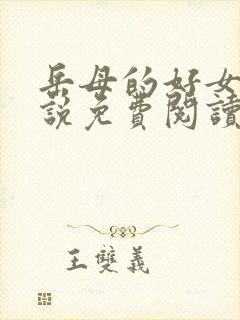 岳母的好女
説免費閱讀
王雙義